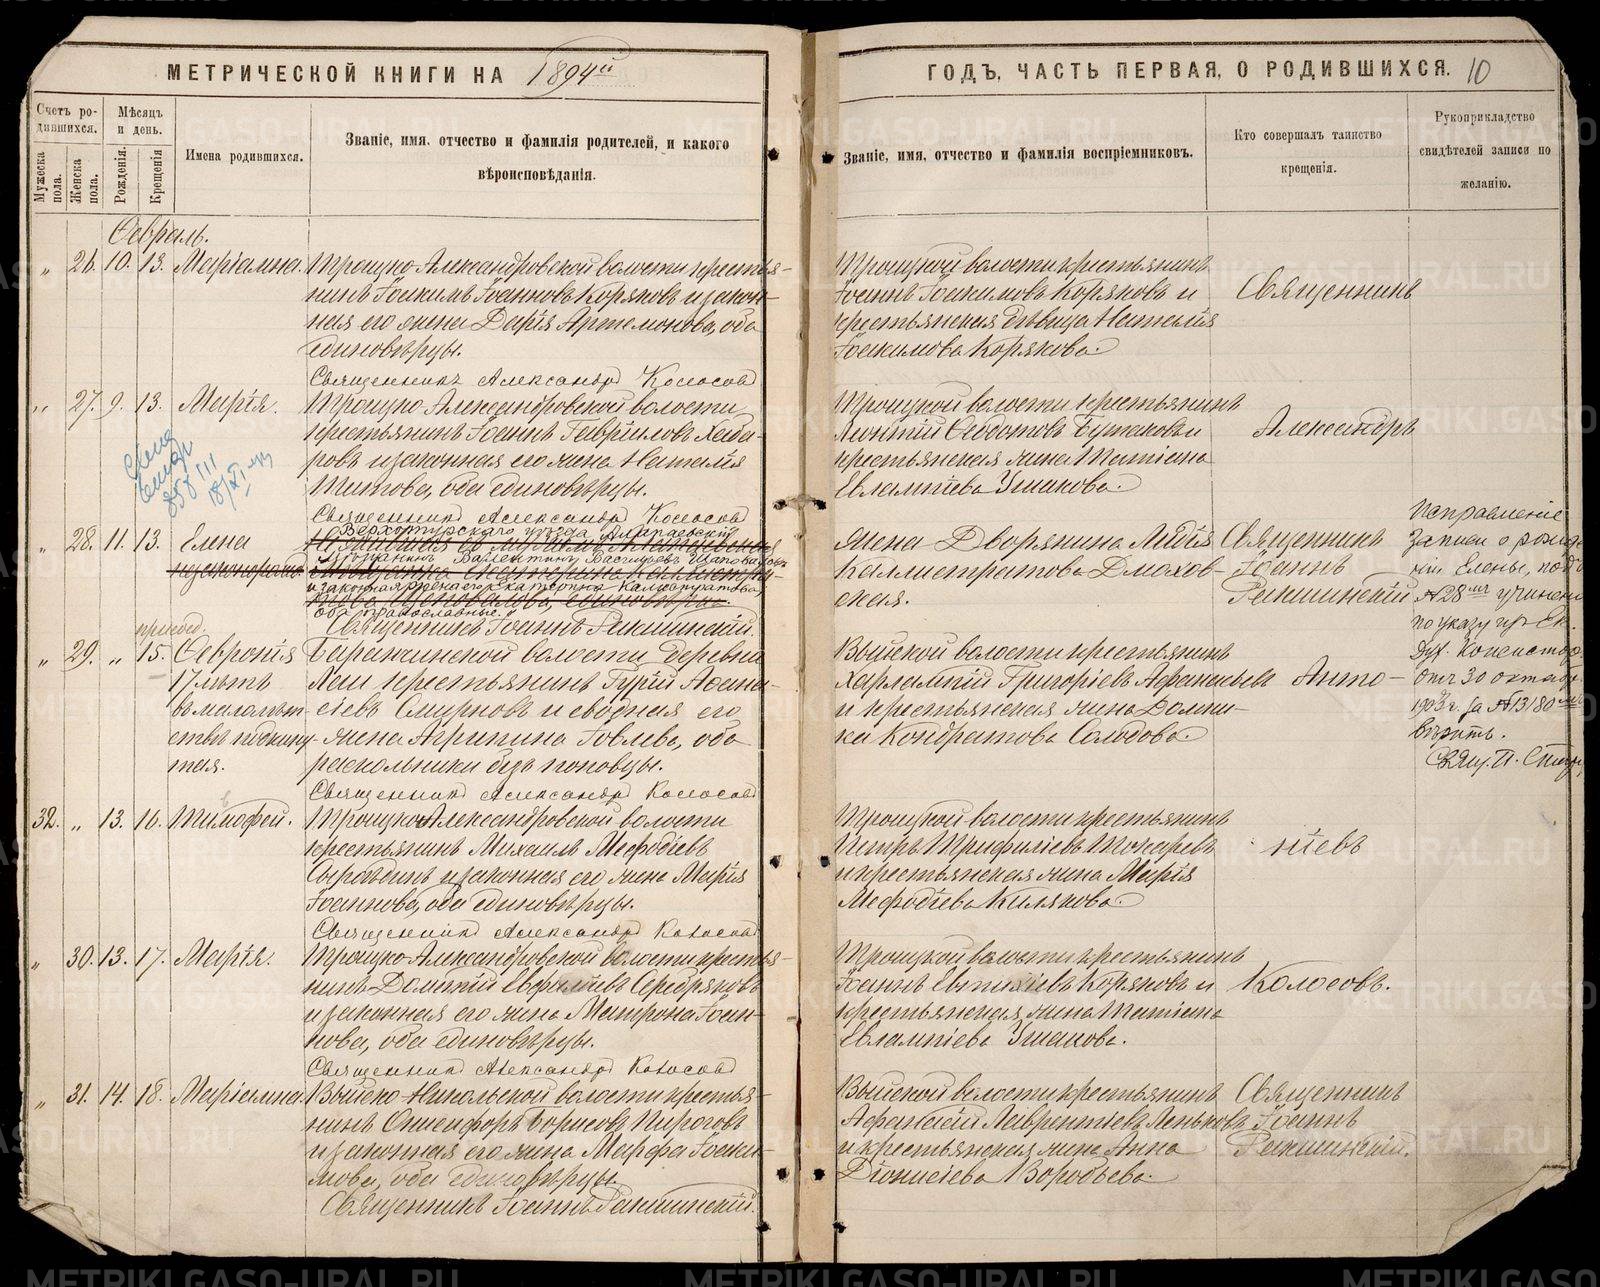 МЕТРИЧЕСКОЙ КНИГИ НА 1894й
ГОДЪ, ЧАСТЬ ПЕРВАЯ, О РОДИВШИХСЯ. 10
Счетъ ро-
дившихся.
Мужеска пола.
Женска пола.
Мѣсяцъ и день.
Рожденія.
Крещенія
Имена родившихся.
Званіе, имя, отчество и фамилія родителей, и какого
вѣроисповѣданія.
Званіе, имя, отчество и фамилія воспріемниковъ.
Кто совершалъ таинство
крещенія.
Рукоприкладство
свидѣтелей записи по
желанію.
Февраль.
„ 26. 10. 13. Маріамна.
Троицко-Александровской волости крестья-
нинъ Іоакимъ Іоанновъ Коряковъ и закон-
ная его жена Дарія Артемонова, оба
единовѣрцы.
Священникъ Александръ Колосовъ
Троицкой волости крестьянинъ
Іоаннъ Іоакимовъ Коряковъ и
крестьянская дѣвица Наталія
Іоакимова Корякова.
Священникъ
„ 27. 9. 13. Марія.
Троицко-Александровской волости
крестьянинъ Іоаннъ Гавріиловъ Хаба-
ровъ и законная его жена Наталія
Титова, оба единовѣрцы.
Священникъ Александръ Колосовъ
Троицкой волости крестьянинъ
Леонтій Ѳедотовъ Бушаковъ и
крестьянская жена Татіана
Евлампіева Ушакова.
Александръ
„ 28. 11. 13. Елена
незаконорожд.
Верхотурскаго уѣзда Алапаевскій
мѣщанинъ Валентинъ Васильевъ Шаповаловъ
и законная жена его Екатерина Каллистратова,
оба православные.
Священникъ Іоаннъ Ракшинскій.
Жена Дворянина Лидія
Каллистратова Дмохов-
ская.
Священникъ
Іоаннъ
Ракшинскій
Исправленіе
записи о рожде-
ніи Елены, подъ
№ 28мъ учинено
по указу изъ Ек.
Дух. Консистор.
отъ 30 октяб.
1903 г. за № 13180
вѣрить.
Свящ. П.
присоед.
„ 29. „ 15. Февронія
17 лѣтъ
въ малолѣт-
ствѣ покину-
тая.
Баранчинской волости деревни
Хаи крестьянинъ Гурій Аѳана-
сіевъ Смирновъ и сводная его
жена Агрипина Іовлева, оба
раскольники безпоповцы.
Священникъ Александръ Колосовъ
Выйской волости крестьянинъ
Харлампій Григоріевъ Афанасьевъ
и крестьянская жена Домни-
ка Кондратова Солодова.
Анто-
32. „ 13. 16. Тимофей.
Троицко-Александровской волости
крестьянинъ Михаилъ Мефодіевъ
и законная его жена Марія
Іоаннова, оба единовѣрцы.
Священникъ Александръ Колосовъ
Троицкой волости крестьянинъ
Петръ Трифиліевъ Токаревъ
и крестьянская жена Марія
Мефодіева Килякова.
ніевъ
„ 30. 13. 17. Марія.
Троицко-Александровской волости крестья-
нинъ Дометій Евфиміевъ Серебряковъ
и законная его жена Матрона Іоан-
нова, оба единовѣрцы.
Священникъ Александръ Колосовъ
Троицкой волости крестьянинъ
Іоаннъ Евтихіевъ Коряковъ и
крестьянская жена Татіана
Евлампіева Ушакова.
Колосовъ.
„ 31. 14. 18. Маріамна.
Выйско-Никольской волости крестья-
нинъ Онисифоръ Борисовъ Пироговъ
и законная его жена Марфа Іоаки-
мова, оба единовѣрцы.
Священникъ Іоаннъ Ракшинскій.
Выйской волости крестьянинъ
Афанасій Лаврентіевъ Леньковъ
и крестьянская жена Анна
Діонисіева Воробьева.
Священникъ
Іоаннъ
Ракшинскій.
METRIKI.GASO-URAL.RU